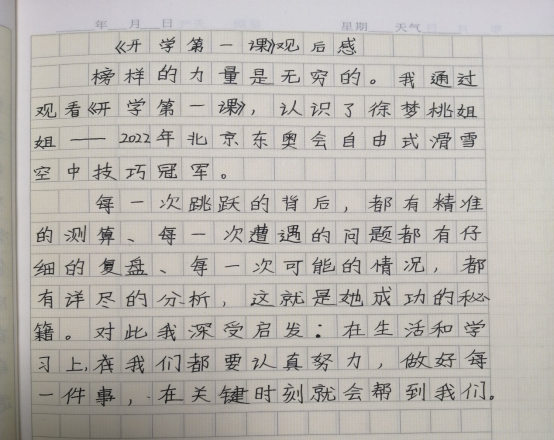 年 月 日
星期 天气
《开学第一课》观后感
榜样的力量是无穷的。我通过
观看《开学第一课》，认识了徐梦桃姐
姐——2022年北京东奥会自由式滑雪
空中技巧冠军。
每一次跳跃的背后，都有精准
的测算、每一次遭遇的问题都有仔
细的复盘、每一次可能的情况，都
有详尽的分析，这就是她成功的秘
籍。对此我深受启发：在生活和学
习上，在我们都要认真努力，做好每
一件事，在关键时刻就会帮到我们。